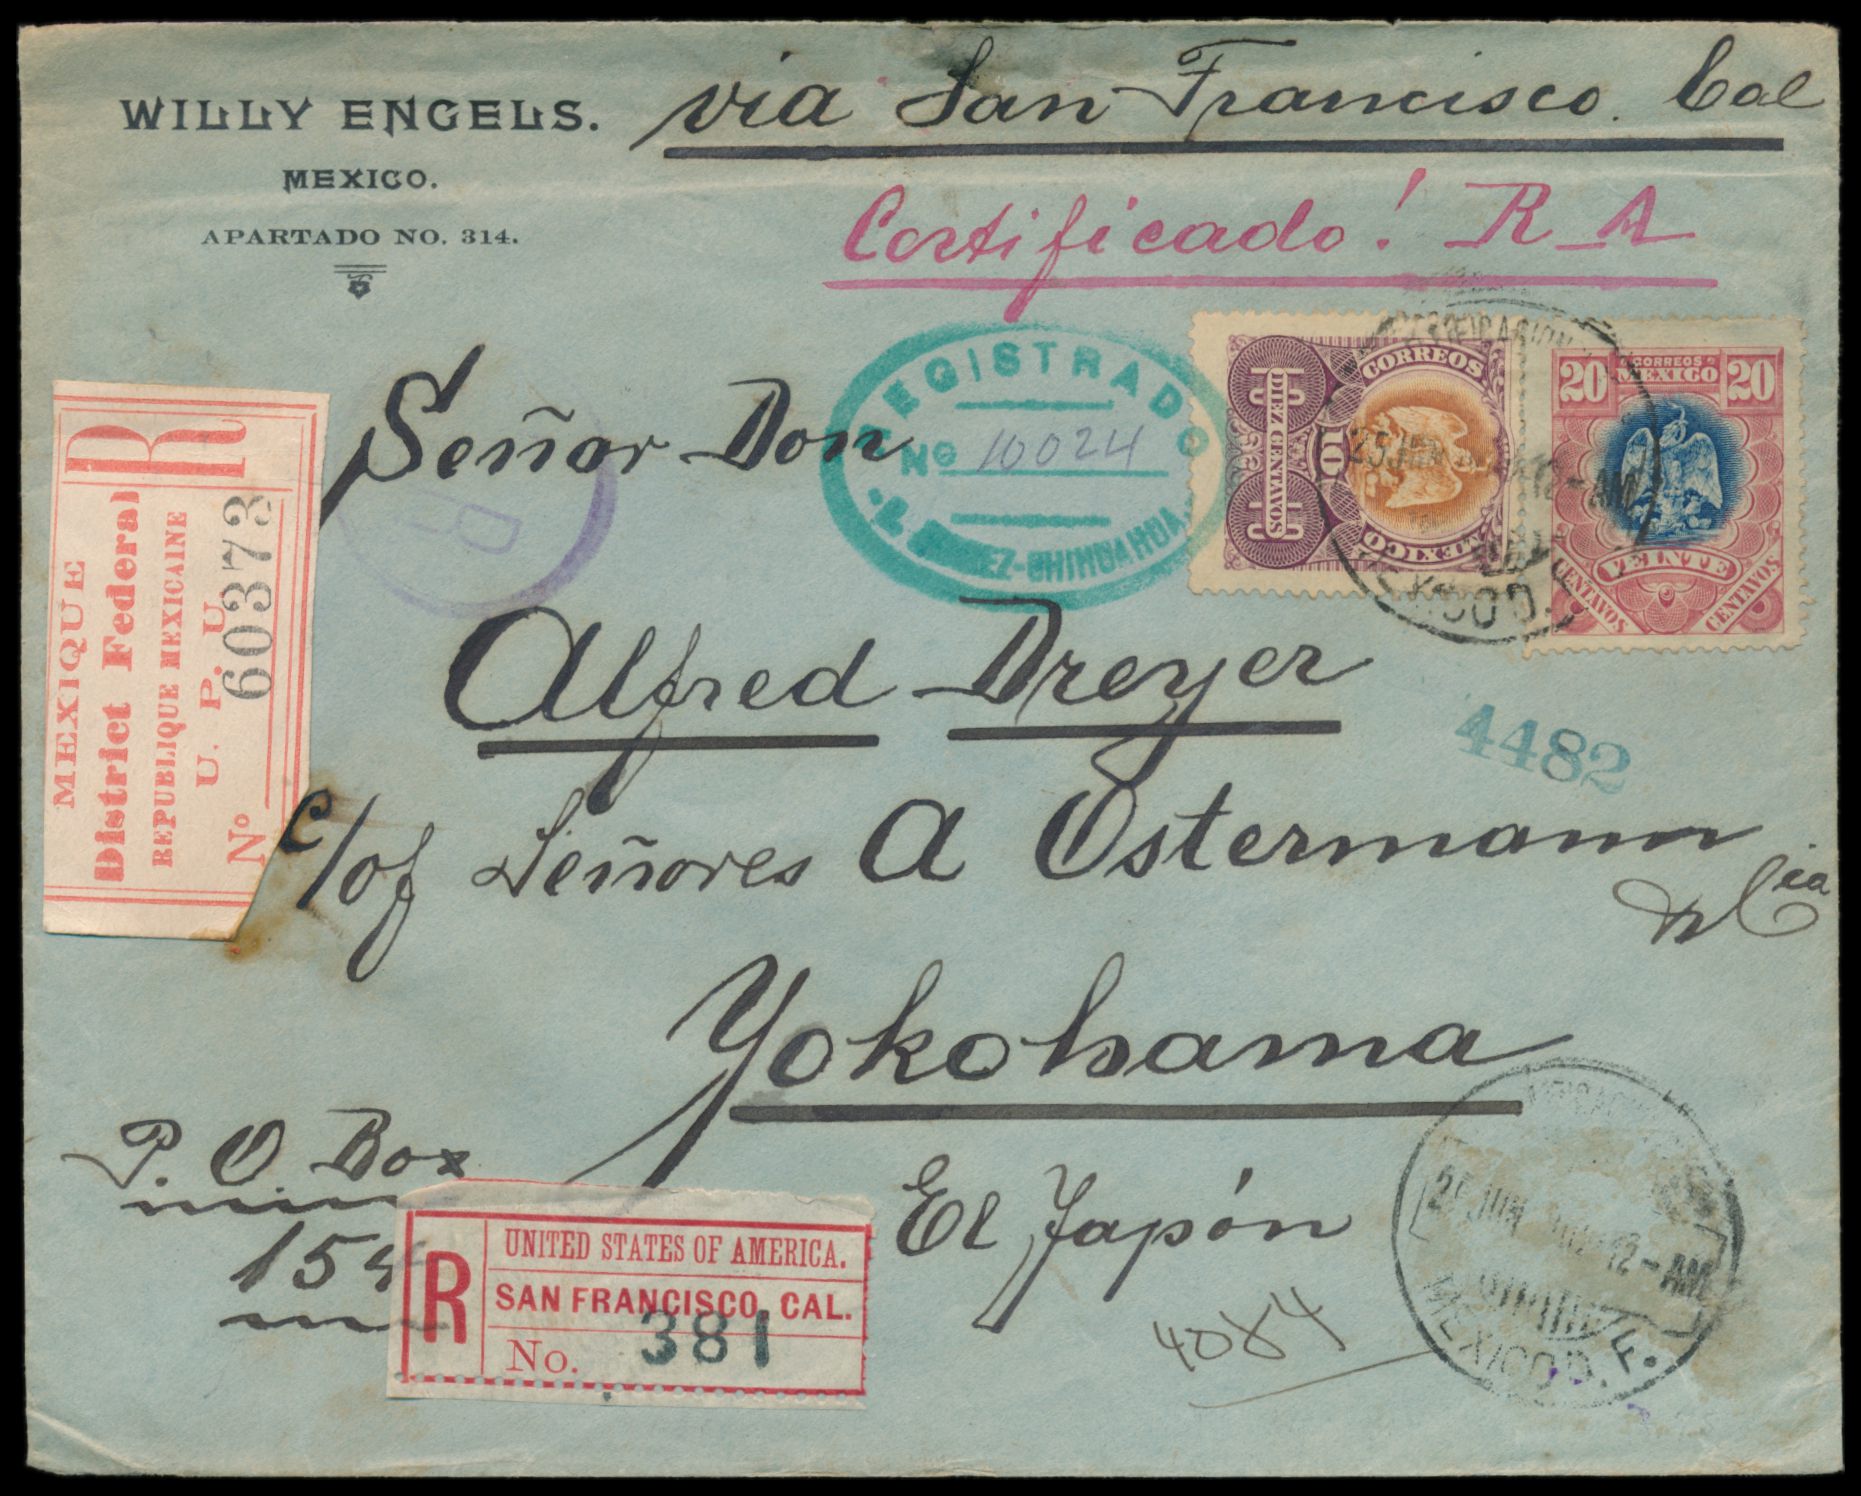 WILLY ENGELS.
MEXICO.
APARTADO NO. 314.
via San Francisco. Cal
Certificado! R A
REGISTRADO
No 10024
JUAREZ-CHIHUAHUA
CORREOS
10 DIEZ CENTAVOS
MEXICO
CORREOS
MEXICO
20 20
VEINTE
CENTAVOS CENTAVOS
25 JUN 12-AM
MEXICO D.
Señor Don
Alfred Dreyer
c/of Señores A Ostermann
y Cia
Yokohama
El Japón
P. O. Box
154
4482
R
MEXIQUE
District Federal
REPUBLIQUE MEXICAINE
U. P. U.
No 60373
R
UNITED STATES OF AMERICA.
SAN FRANCISCO, CAL.
No. 381
4084
25 JUN 12-AM
MEXICO D. F.